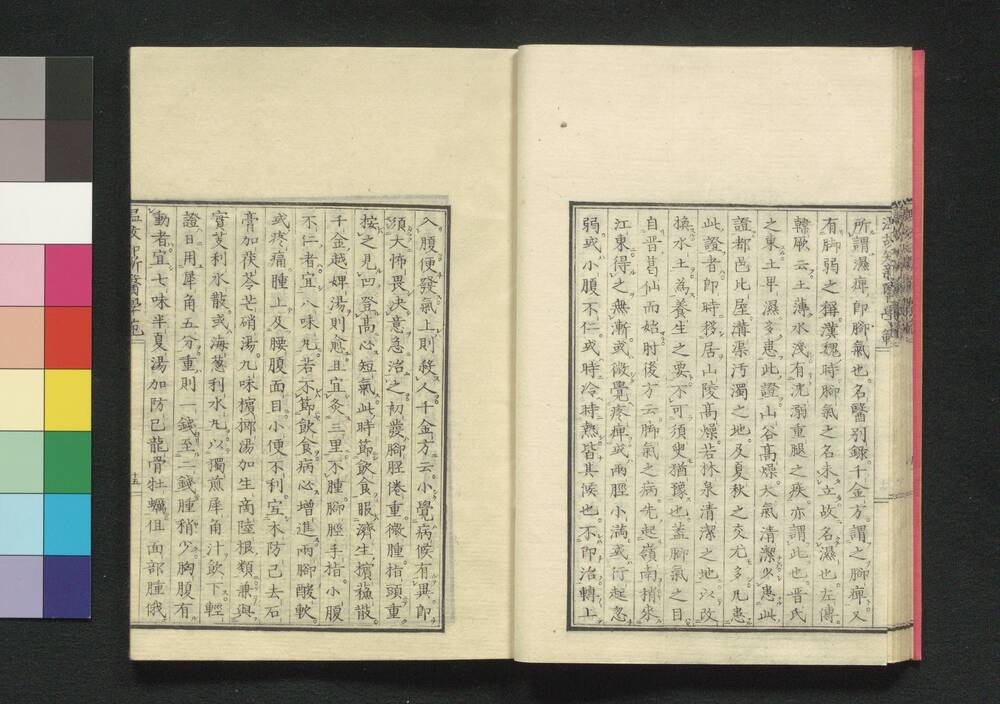 所謂濕痺即脚氣也名醫別録千金方謂之腳痺又
有脚弱之稱漢魏時腳氣之名未立故名濕也左傳
韓厥云土薄水淺有沉溺重腿之疾亦謂此也晋氏
之東土卑濕多患此證山谷高燥大氣清潔少患此
證都邑比屋溝渠汚濁之地及夏秋之交尤多凡患
此證者即時移居山陵高燥若林泉清潔之地以改
換水土為養生之要不可須臾猶豫也蓋腳氣之目
自晋葛仙而始肘後方云脚氣之病先起嶺南稍來
江東得之無漸或微覺疼痺或兩脛小滿或行起忽
弱或小腹不仁或時冷時熱皆其候也不即治轉上
入腹便發氣上則殺人千金方云小覺病候有異即
須大怖畏决意急治之初發腳脛倦重微腫指頭重
按之見凹登高必短氣此時節飲食眠濟生檳蘓散
千金越婢湯則愈且宜灸三里不腫腳脛手指小腹
不仁者宜八味丸若不節飲食病必增進兩腳酸軟
或疼痛腫上及腰腹面目小便不利宜木防己去石
膏加茯苓芒硝湯九味檳榔湯加生商陸根類兼與
實芰利水散或海葱利水丸以獨煎犀角汁飲下輕
證日用犀角五分重則一錢至二錢腫稍少胸腹有
動者宜七味半夏湯加防已龍骨牡蠣但面部腫俄
温故知新醫學範
十五